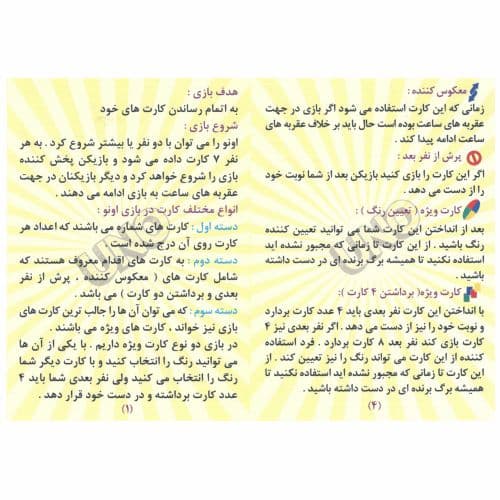 معکوس کننده :
زمانی که این کارت استفاده می شود اگر بازی در جهت
عقربه های ساعت بوده است حال باید بر خلاف عقربه های
ساعت ادامه پیدا کند .
پرش از نفر بعد :
اگر این کارت را بازی کنید بازیکن بعد از شما نوبت خود
را از دست می دهد .
کارت ویژه ( تعیین رنگ ) :
بعد از انداختن این کارت شما می توانید تعیین کننده
رنگ باشید . از این کارت تا زمانی که مجبور نشده اید
استفاده نکنید تا همیشه برگ برنده ای در دست داشته
باشید .
کارت ویژه( برداشتن ۴ کارت ):
با انداختن این کارت نفر بعدی باید ۴ عدد کارت بردارد
و نوبت خود را نیز از دست می دهد . اگر نفر بعدی نیز ۴
کارت بازی کند نفر بعد ۸ کارت بردارد . فرد استفاده
کننده از این کارت می تواند رنگ را نیز تعیین کند . از
این کارت تا زمانی که مجبور نشده اید استفاده نکنید تا
همیشه برگ برنده ای در دست داشته باشید .
(۴)
هدف بازی :
به اتمام رساندن کارت های خود
شروع بازی :
اونو را می توان با دو نفر یا بیشتر شروع کرد . به هر
نفر ۷ کارت داده می شود و بازیکن پخش کننده
بازی را شروع خواهد کرد و دیگر بازیکنان در جهت
عقربه های ساعت به بازی ادامه می دهند .
انواع مختلف کارت در بازی اونو :
دسته اول : کارت های شماره می باشند که اعداد هر
کارت روی آن درج شده است .
دسته دوم : به کارت های اقدام معروف هستند که
شامل کارت های ( معکوس کننده ، پرش از نفر
بعدی و برداشتن دو کارت ) می باشد .
دسته سوم : که می توان آن ها را جالب ترین کارت های
بازی نیز خواند ، کارت های ویژه می باشند .
در بازی دو نوع کارت ویژه داریم . با یکی از آن ها
می توانید رنگ را انتخاب کنید و با کارت دیگر شما
رنگ را انتخاب می کنید ولی نفر بعدی شما باید ۴
عدد کارت برداشته و در دست خود قرار دهد .
(۱)
UNO
UNO